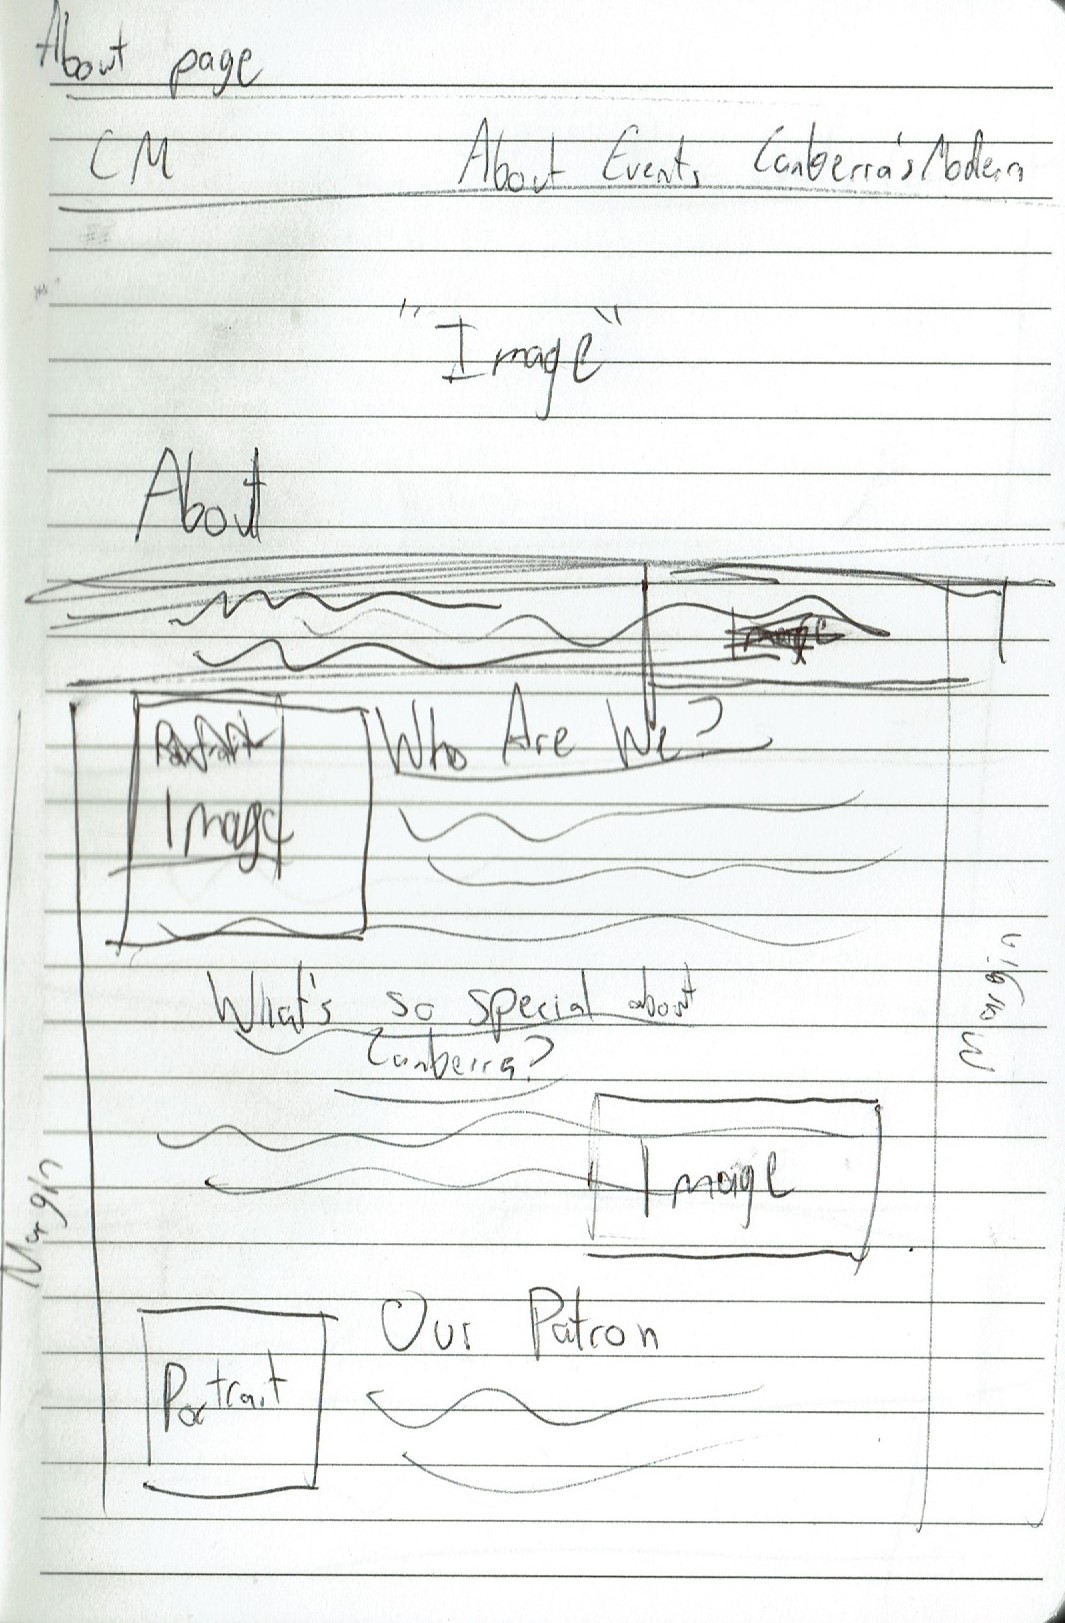 About page
CM About Events Canberra's Modern
"Image"
About
Image
Who Are We?
Portrait
Image
What's so special about
Canberra?
Image
Margin
Margin
Our Patron
Portrait